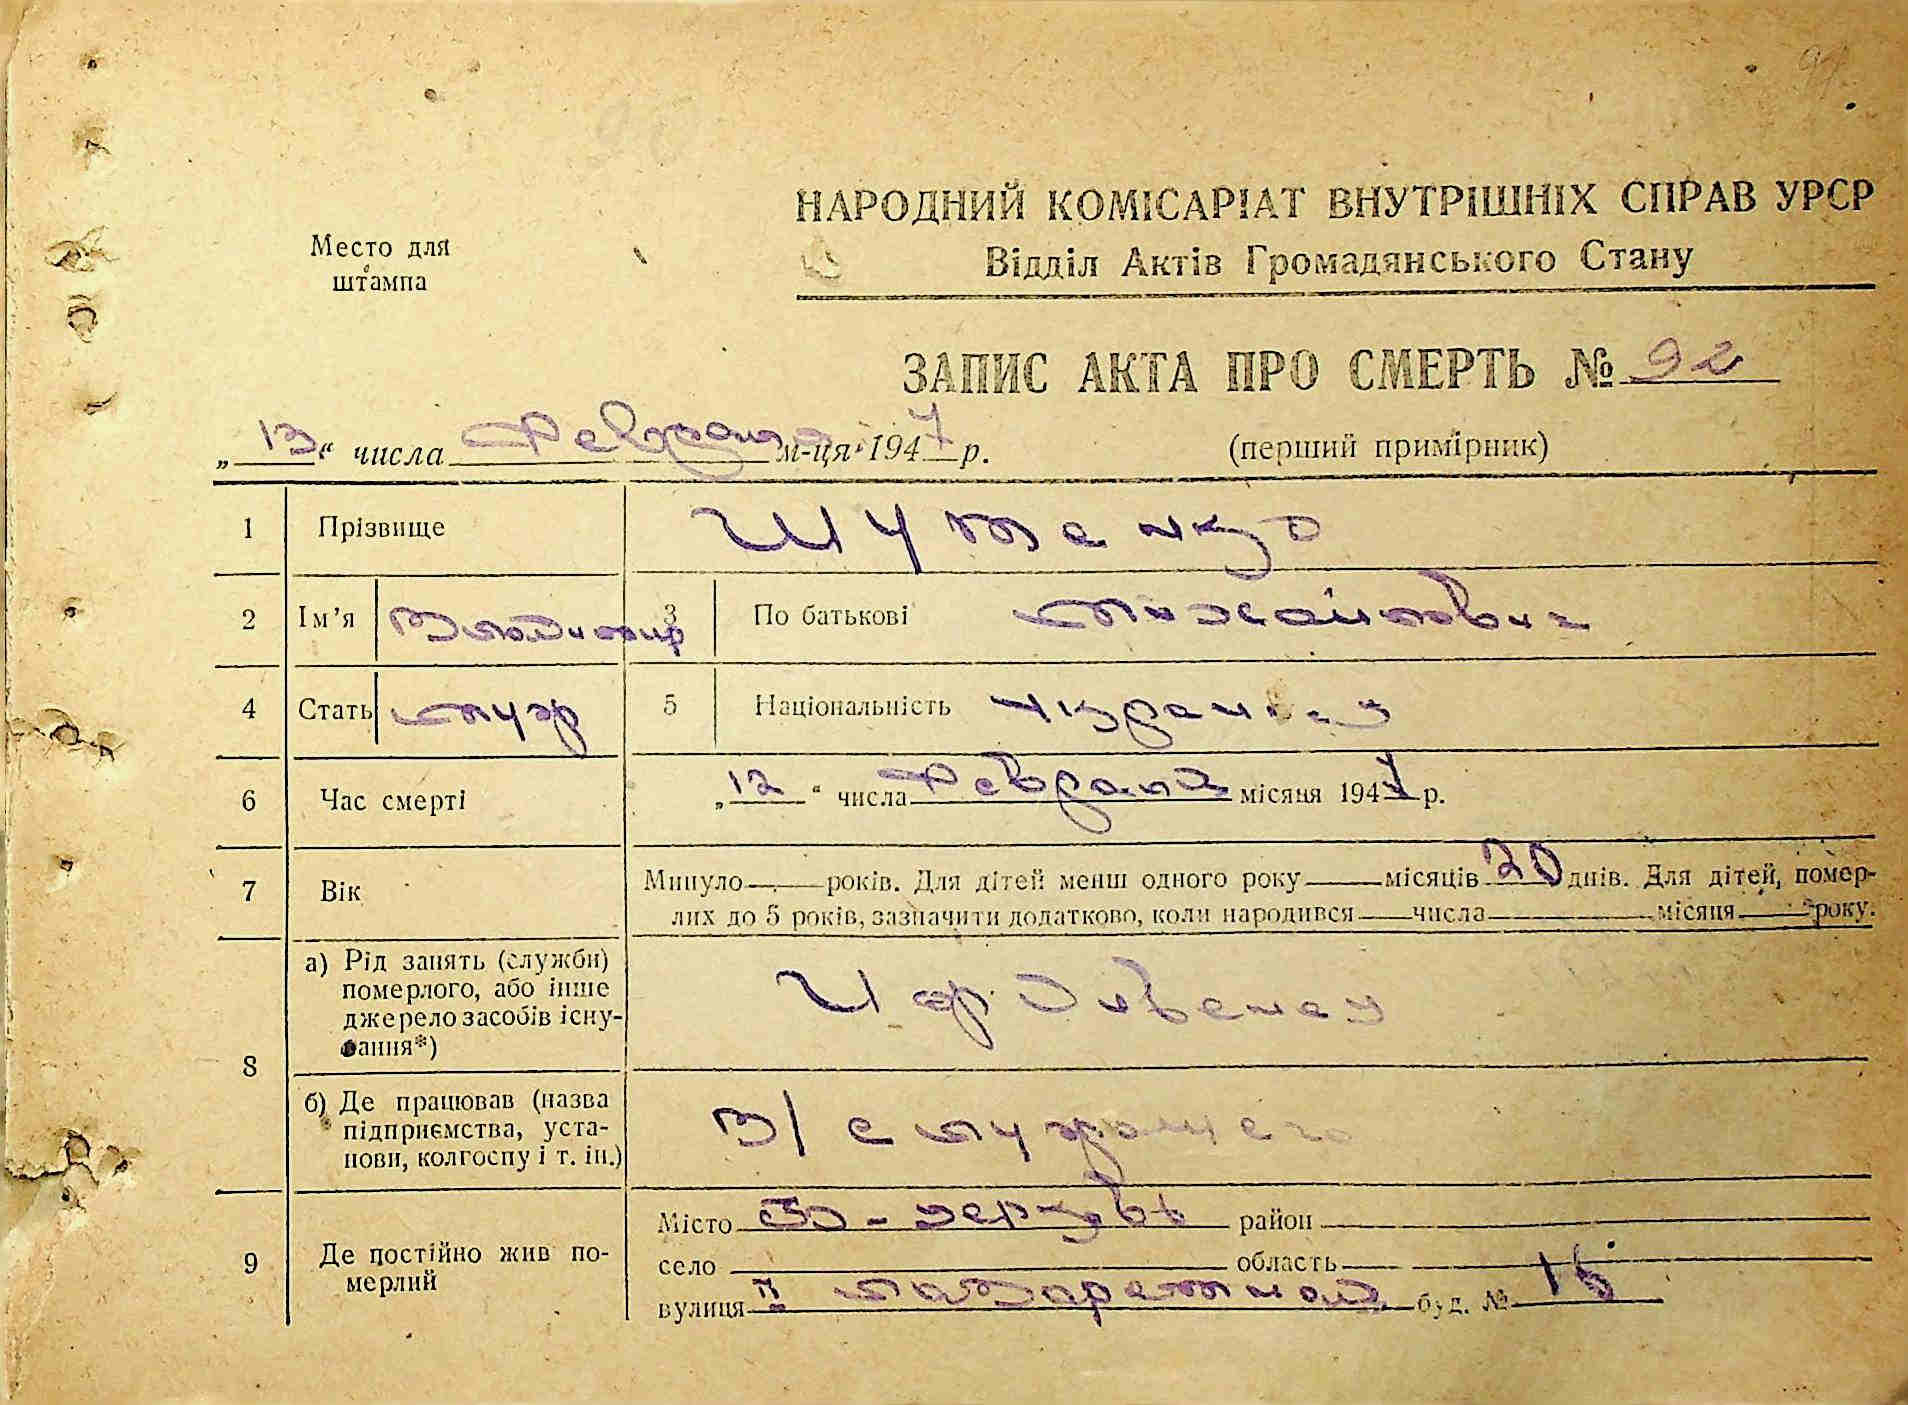 94
НАРОДНИЙ КОМІСАРІАТ ВНУТРІШНІХ СПРАВ УРСР
Место для
штампа
Відділ Актів Громадянського Стану
ЗАПИС АКТА ПРО СМЕРТЬ № 92
„13“ числа Февраля м-ця 1947 р.
(перший примірник)
1 Прізвище Шуманко
2 Ім’я Владимир 3 По батькові Михайлович
4 Стать муж 5 Національність украинец
6 Час смерті „12“ числа Февраля місяця 1947 р.
7 Вік Минуло — років. Для дітей менш одного року — місяців 20 днів. Для дітей, помер-
лих до 5 років, зазначити додатково, коли народився — числа — місяця — року.
8 а) Рід занять (служби)
померлого, або інше
джерело засобів існу-
вання*) Иждивенец
б) Де працював (назва
підприємства, уста-
нови, колгоспу і т. ін.) В/служащего
9 Де постійно жив по-
мерлий
Місто район
село область
вулиця II буд. № 15